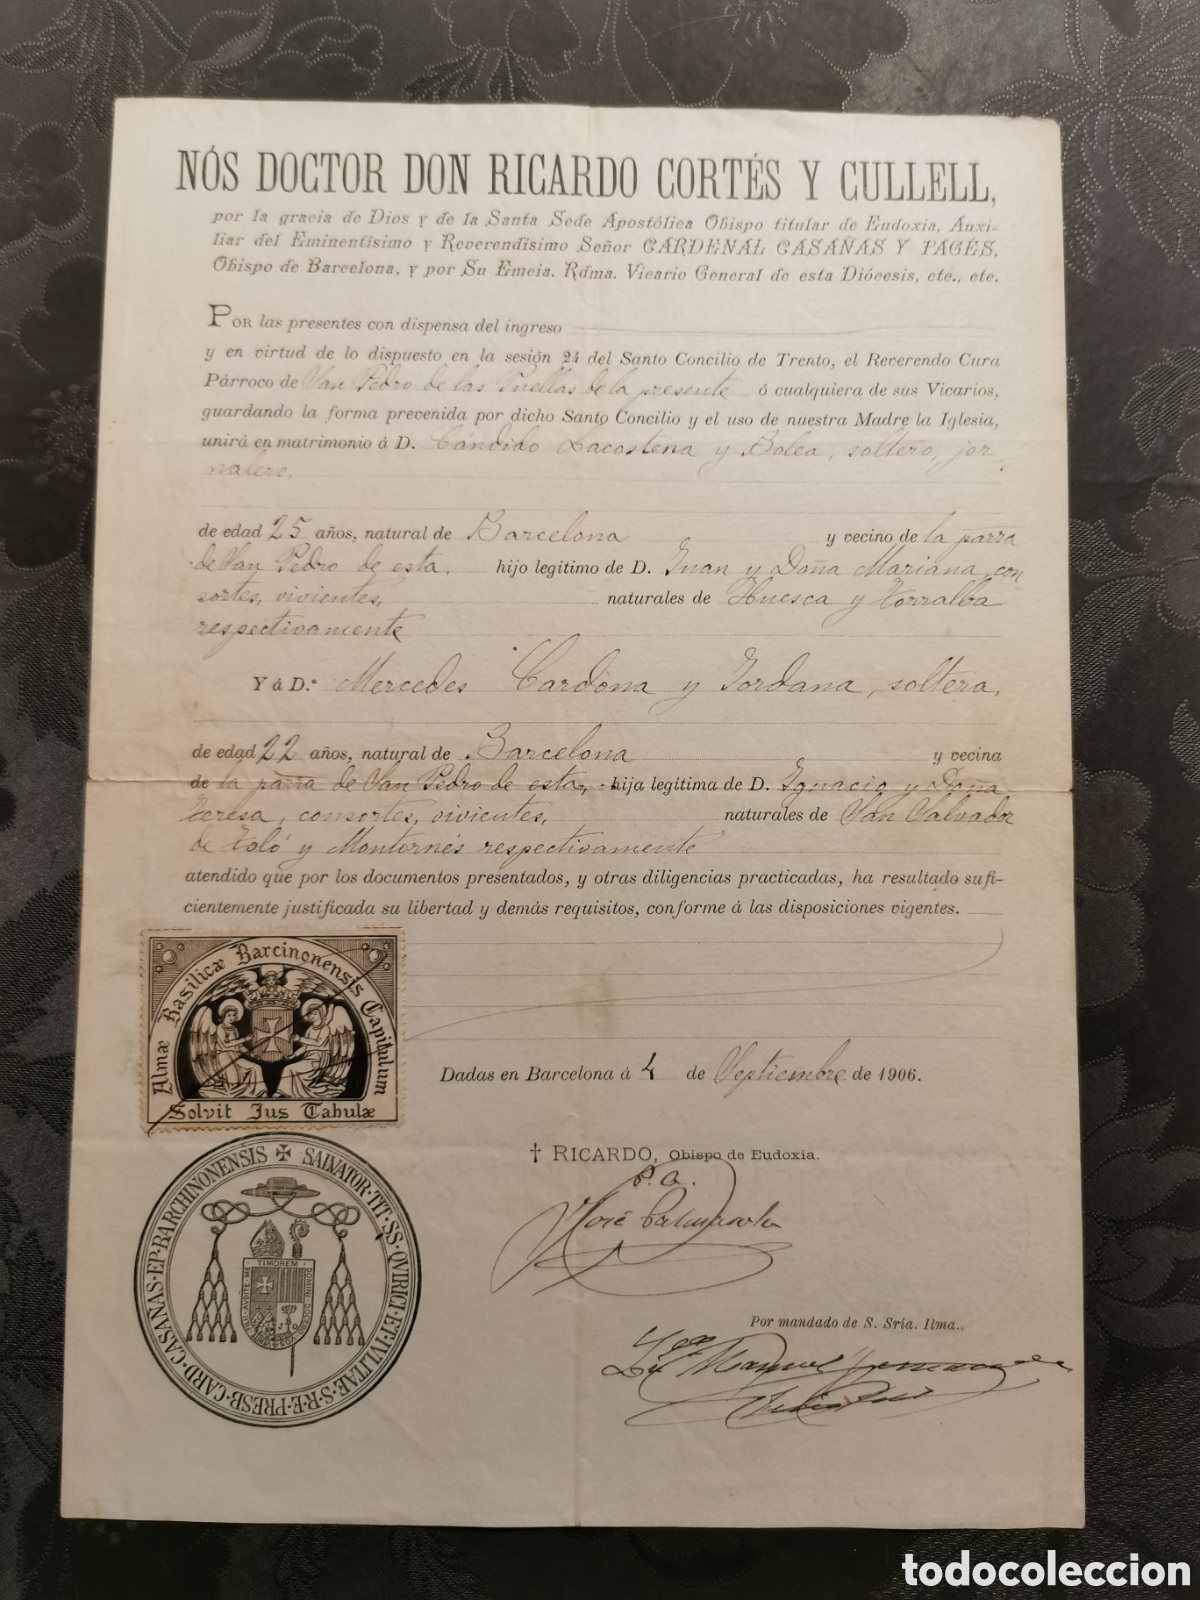 NÓS DOCTOR DON RICARDO CORTÉS Y CULLELL,
por la gracia de Dios y de la Santa Sede Apostólica Obispo titular de Eudoxia, Auxi-
liar del Eminentísimo y Reverendísimo Señor CARDENAL CASAÑAS Y PAGÉS,
Obispo de Barcelona, y por Su Emcia. Rdma. Vicario General de esta Diócesis, etc., etc.
POR las presentes con dispensa del ingreso
y en virtud de lo dispuesto en la sesión 24 del Santo Concilio de Trento, el Reverendo Cura
Párroco de San Pedro de las Puellas de la presente ó cualquiera de sus Vicarios,
guardando la forma prevenida por dicho Santo Concilio y el uso de nuestra Madre la Iglesia,
unirá en matrimonio á D. Cándido Lacostena y Bolea, soltero, jor
nalero,
de edad 25 años, natural de Barcelona y vecino de la parra
de San Pedro de esta. hijo legítimo de D. Juan y Doña Mariana, con
sortes, vivientes, naturales de Huesca y Torralba
respectivamente
Y á D.ª Mercedes Cardona y Jordana, soltera,
de edad 22 años, natural de Barcelona y vecina
de la parra de San Pedro de esta, hija legítima de D. Ignacio y Doña
Teresa, consortes, vivientes, naturales de San Salvador
de Toló y Montornés respectivamente
atendido que por los documentos presentados, y otras diligencias practicadas, ha resultado sufi-
cientemente justificada su libertad y demás requisitos, conforme á las disposiciones vigentes.
Almæ Basilicæ Barcinonensis Capitulum
Solvit Jus Tabulæ
Dadas en Barcelona á 4 de Septiembre de 1906.
† RICARDO, Obispo de Eudoxia.
P. A.
José Palmarola
SALVATOR·TIT·SS·QVIRICI·ET·IVLITAE·S·R·E·PRESB·CARD·CASAÑAS·EP·BARCHINONENSIS
TIMOREM
Por mandado de S. Sría. Ilma.,
Manuel
todocoleccion